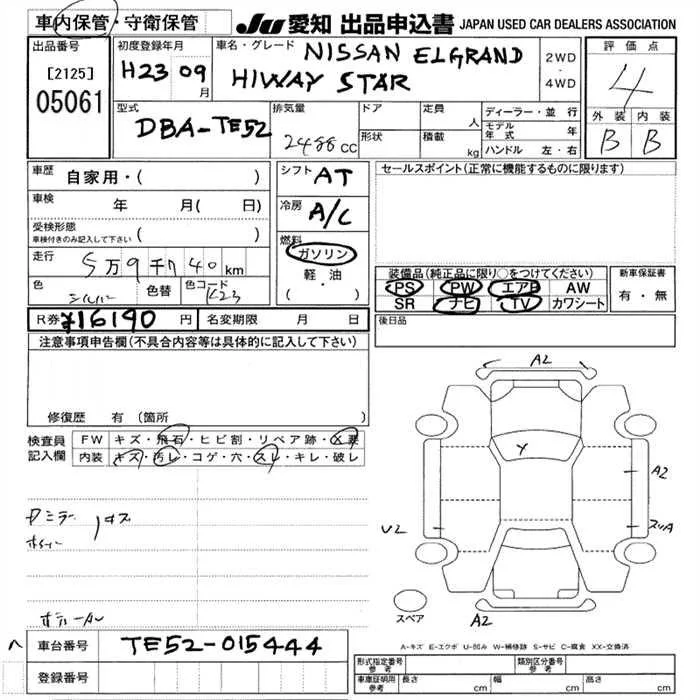 車内保管・守衛保管 JU 愛知 出品申込書 JAPAN USED CAR DEALERS ASSOCIATION
出品番号 初度登録年月 車名・グレード NISSAN ELGRAND 2WD 評価点
[2125] H23 09月 HIWAY STAR 4WD 4
05061 型式 排気量 ドア 定員 人 ディーラー・並行 外装 内装
DBA-TE52 2488cc 形状 積載 kg モデル年式 年 B B
ハンドル 左・右
車歴 自家用・( ) シフト AT セールスポイント(正常に機能するものに限ります)
車検 年 月( 日) 冷房 A/C
受検形態
車検付きのみ記入して下さい ( ) 燃料 ガソリン
走行 5万9千740km 軽・油 装備品(純正品に限り○をつけてください) 新車保証書
色 シルバー 色替 色コード K23 ・( ) PS PW エアB AW 有・無
SR ナビ TV カワシート
R券 ¥16190円 名変期限 月 日 後日品
注意事項申告欄(不具合内容等は具体的に記入して下さい)
A2
修復歴 有(箇所 )
検査員 FW キズ・飛石・ヒビ割・リペア跡・X要
記入欄 内装 キズ・汚レ・コゲ・穴・スレ・キレ・破レ
Y
A2
キズ
U2
スリA
スペア
A2
車台番号 TE52-015444
A-キズ E-エクボ U-凹み W-補修跡 S-サビ C-腐食 XX-交換済
登録番号
形式指定番号 参考 類別区分番号 参考
車庫証明用 参考 長さ cm 幅 cm 高さ cm